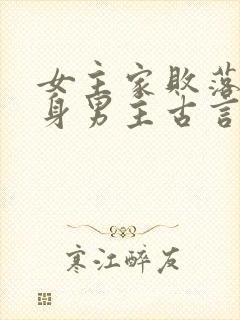 女主家败落
身男主古言
寒江醉友